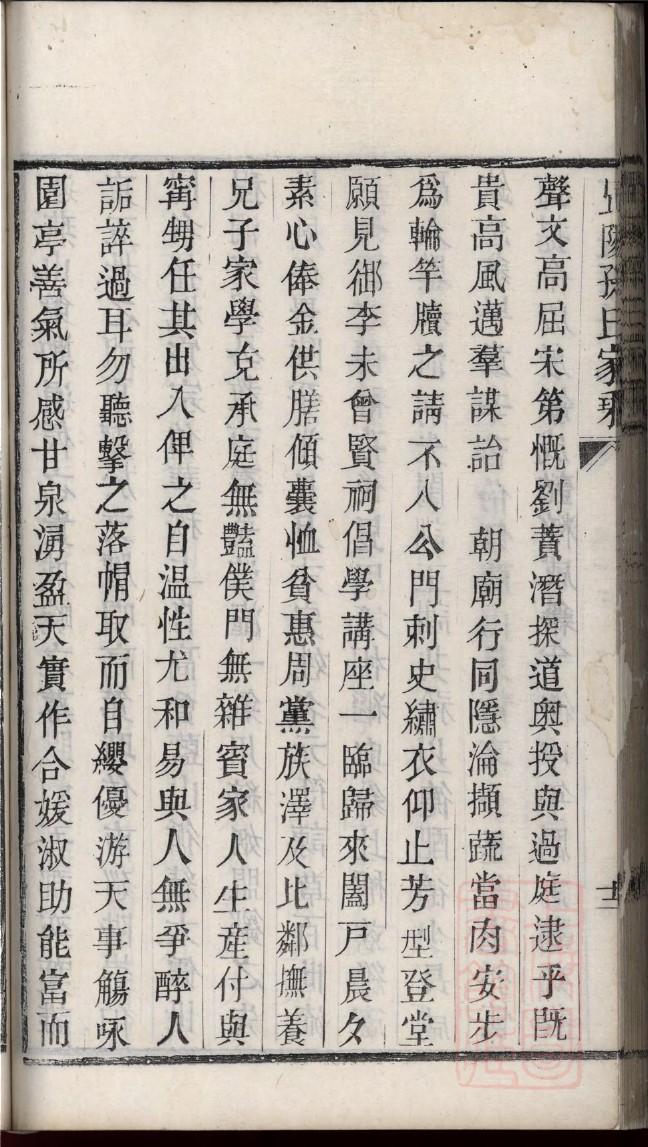 陽孫氏家乘
聲文高屈宋第慨劉蕡潛探道奥授與過庭逮乎既
貴高風邁羣謀詒 朝廟行同隱淪擷蔬當肉安步
爲輪竿牘之請不入公門刺史繡衣仰止芳型登堂
願見御李未曾賢祠倡學講座一臨歸來闔戸晨夕
素心俸金供膳傾囊恤貧惠周黨族澤及比鄰撫養
兄子家學克承庭無豔僕門無雜賓家人生産付與
甯甥任其出入俾之自温性尤和易與人無爭醉人
詬誶過耳勿聽擊之落帽取而自纓優游天事觴咏
園亭善氣所感甘泉湧盈天實作合媛淑助能富而
十二